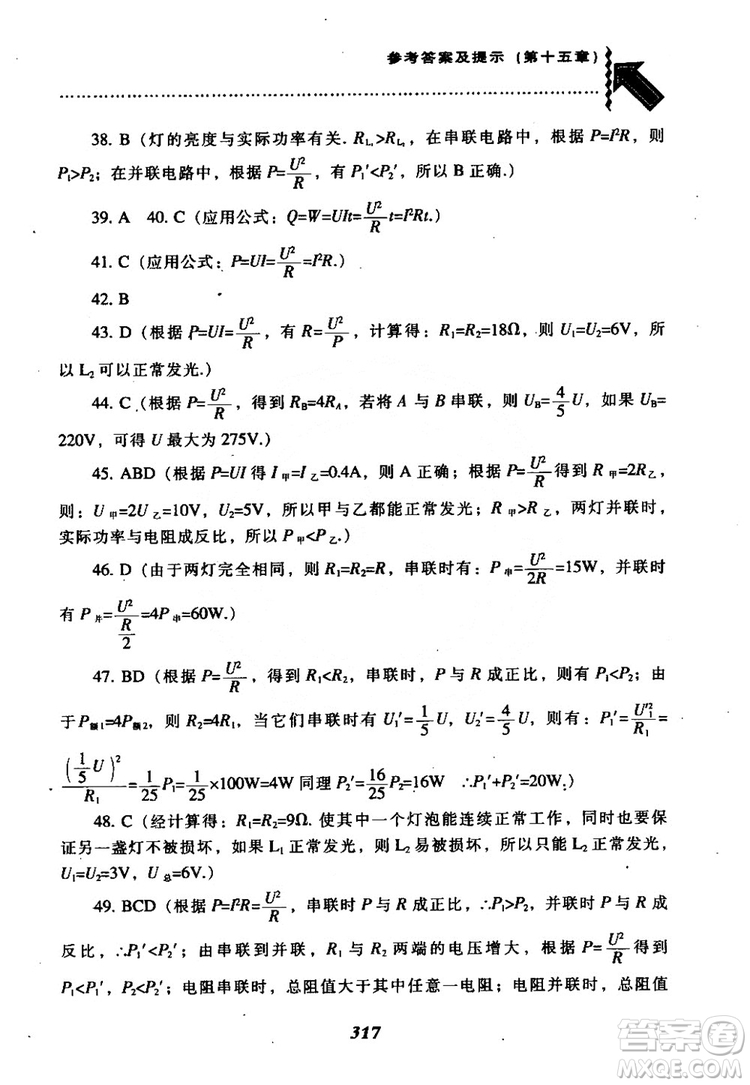 参考答案及提示 (第十五章)
38. B (灯的亮度与实际功率有关. R_L₁>R_L₂, 在串联电路中, 根据 P=I²R, 则
P₁>P₂; 在并联电路中, 根据 P=U²/R, 有 P₁′<P₂′, 所以 B 正确.)
39. A 40. C (应用公式: Q=W=UIt=U²/R t=I²Rt.)
41. C (应用公式: P=UI=U²/R=I²R.)
42. B
43. D (根据 P=UI=U²/R, 有 R=U²/P, 计算得: R₁=R₂=18Ω, 则 U₁=U₂=6V, 所
以 L₂ 可以正常发光.)
44. C (根据 P=U²/R, 得到 R_B=4R_A, 若将 A 与 B 串联, 则 U_B=4/5 U, 如果 U_B=
220V, 可得 U 最大为 275V.)
45. ABD (根据 P=UI 得 I甲=I乙=0.4A, 则 A 正确; 根据 P=U²/R 得到 R甲=2R乙,
则: U甲=2U乙=10V, U₂=5V, 所以甲与乙都能正常发光; R甲>R乙, 两灯并联时,
实际功率与电阻成反比, 所以 P甲<P乙.)
46. D (由于两灯完全相同, 则 R₁=R₂=R, 串联时有: P串=U²/2R=15W, 并联时
有 P并=U²/(R/2)=4P串=60W.)
47. BD (根据 P=U²/R, 得到 R₁<R₂, 串联时, P 与 R 成正比, 则有 P₁<P₂; 由
于 P额1=4P额2, 则 R₂=4R₁, 当它们串联时有 U₁′=1/5 U, U₂′=4/5 U, 则有: P₁′=U′₁²/R₁=
(1/5 U)²/R₁=1/25 P₁=1/25×100W=4W 同理 P₂′=16/25 P₂=16W ∴P₁′+P₂′=20W.)
48. C (经计算得: R₁=R₂=9Ω. 使其中一个灯泡能连续正常工作, 同时也要保
证另一盏灯不被损坏, 如果 L₁ 正常发光, 则 L₂ 易被损坏, 所以只能 L₂ 正常发光,
U₁=U₂=3V, U总=6V.)
49. BCD (根据 P=I²R=U²/R, 串联时 P 与 R 成正比, ∴P₁>P₂, 并联时 P 与 R 成
反比, ∴P₁′<P₂′; 由串联到并联, R₁ 与 R₂ 两端的电压增大, 根据 P=U²/R 得到
P₁<P₁′, P₂<P₂′; 电阻串联时, 总阻值大于其中任意一电阻; 电阻并联时, 总阻值
317
答案圈
MXQE.COM